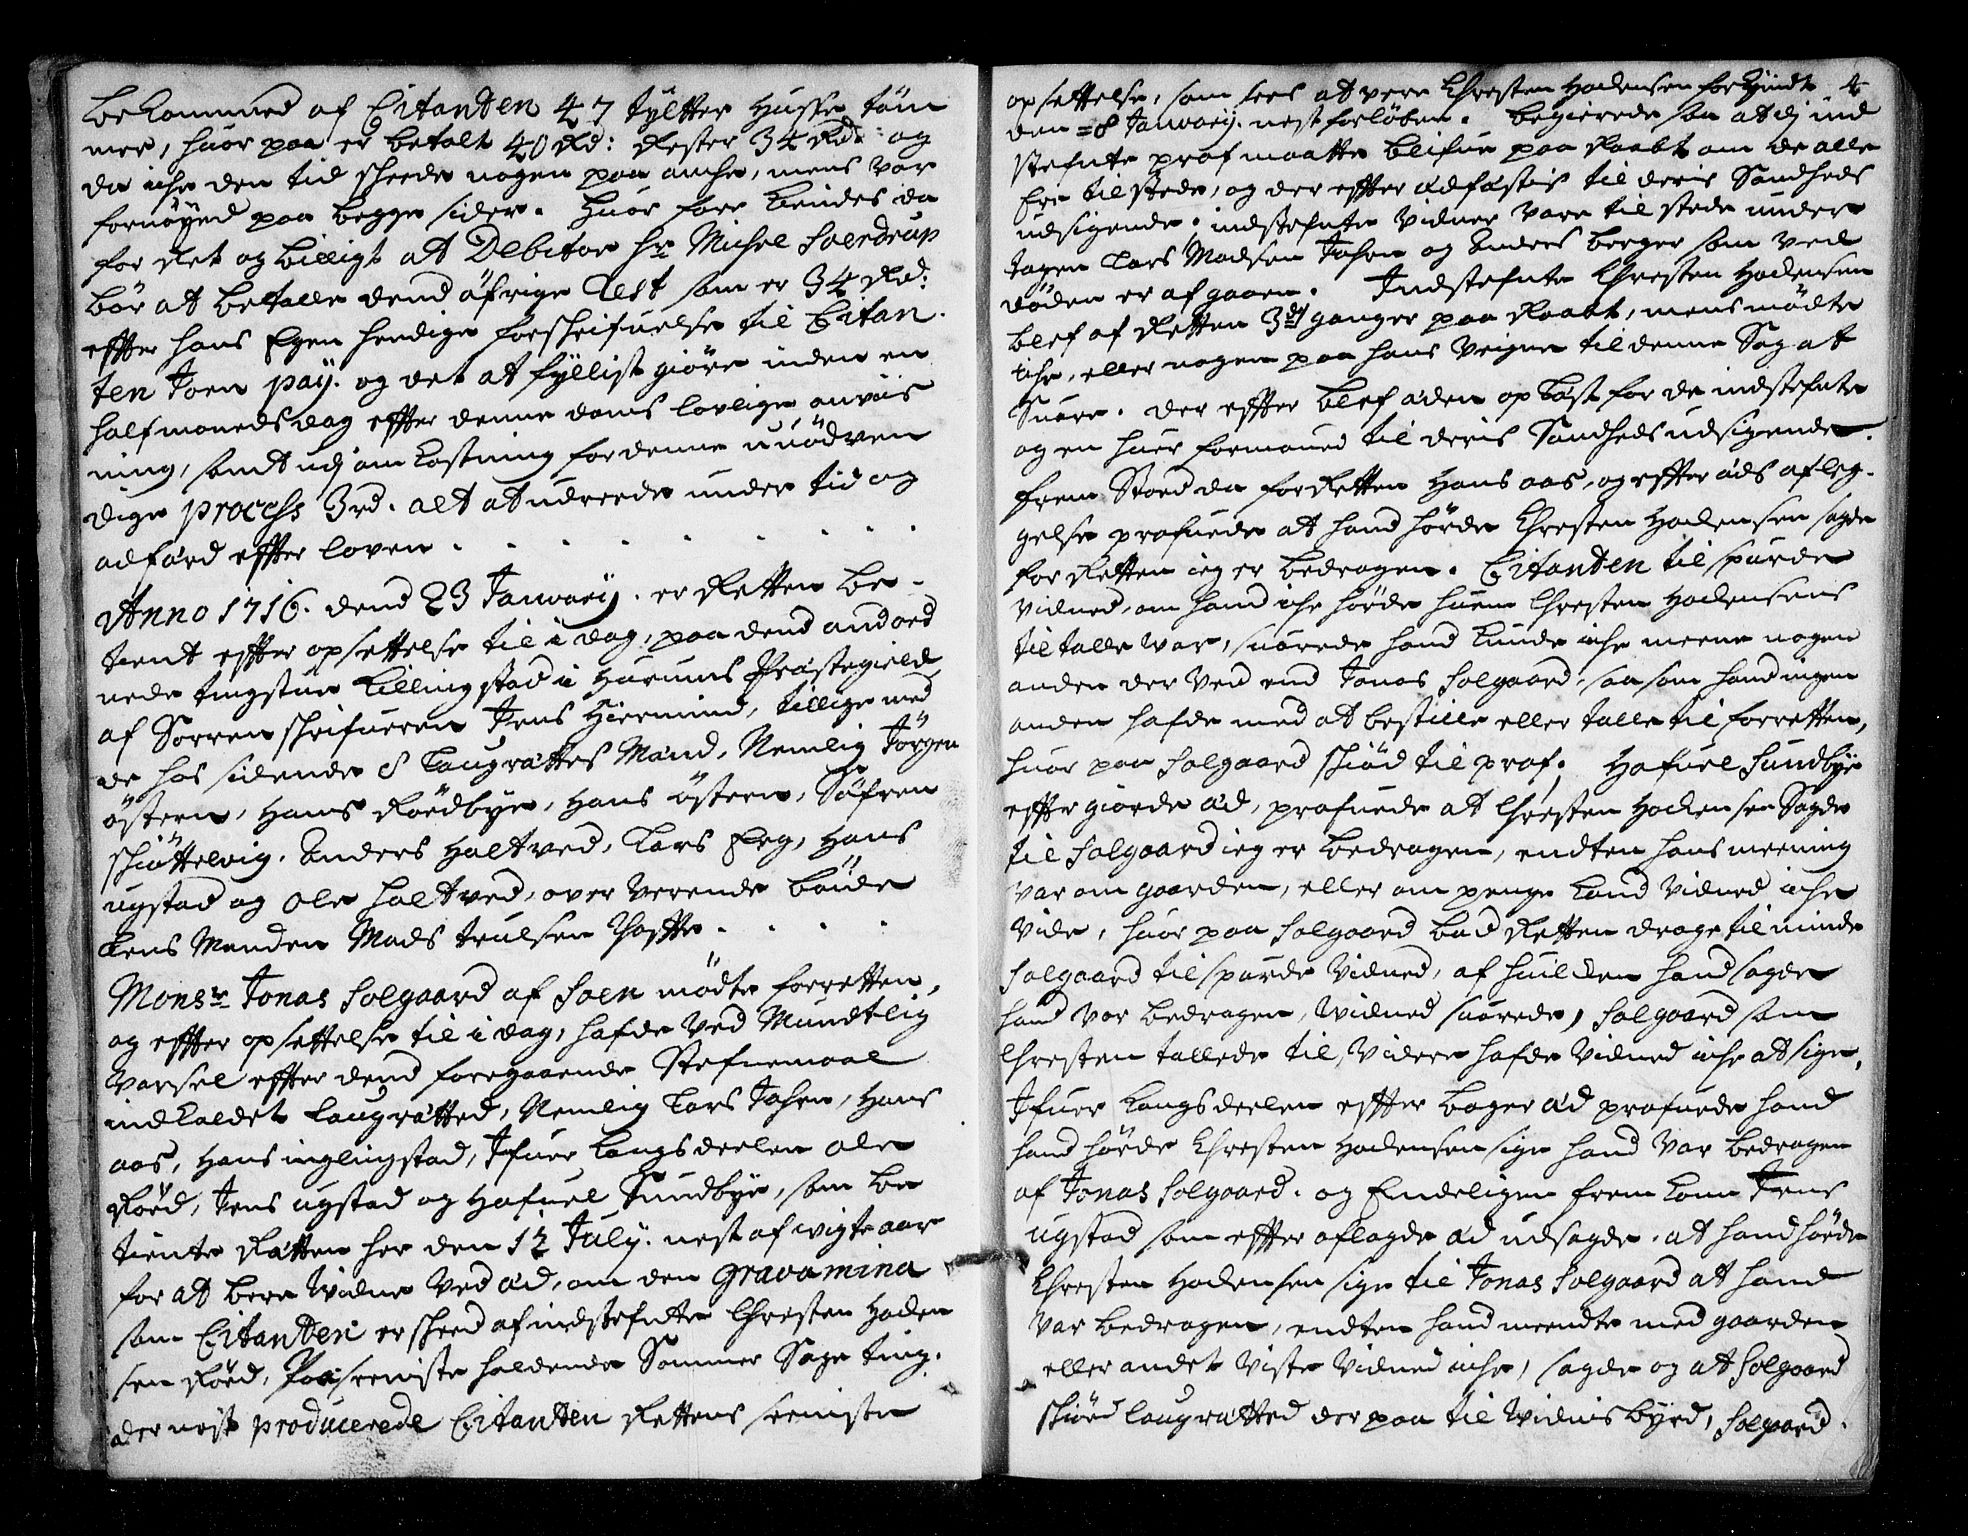 bekommed af Citanten 47 tÿlter Husse töm
mer, huor paa er betalt 40 Rd: Rester 34 Rd: og
da iche den tid skeede nogen paa anche, mens var
fornöÿed paa begge sider. Huor fore kiendes da
for Ret og billigt att Debitor hr Michel Soerdrup
bör at betalle dend öfrige Rest som er 34 Rd:
effter hans Egen hendige forskrifuelse til Citan-
ten Joen paÿ. og det at fÿllist giöre inden en
half moneds dag effter denne doms lovlige anviis
ning, samt udj omkostning for denne unödven
dige process 3rd. alt at udreede under tid og
adfärd effter loven . . . . . . .
Anno 1716. dend 23 Januarij. er Retten be-
tient effter opsettelse til i dag, paa dend andord
nede tingstue Killingstad i Hurums Præstegield
af Sorren skrifueren Jens Hiermind, tillige med
de hos sidende 8 Laugrættes Mænd, Nemlig Jörgen
östern, Hans Rödbÿe, Hans östern, Söfren
skiöttelvig, Anders Holtved, Lars Eeg, Hans
ugstad og Ole holtved, over verende böide
Lens Manden Mads trulsen Tofte . . . .
Monsr Jonas Solgaard af Soen mödte for retten,
og effter opsettelse til i dag, hafde ved Mundtlig
varsel effter dend foregaaende Stefnemaal
indkaldet laugrætted, Nemlig Lars Tofte, Hans
aas, Hans inglingstad, Ifuer Langsdeelen Ole
Röed, Jens ugstad og Hafuel Sundbÿe, som be
tiente Rætten her den 12 Julÿ. nest afvigte aar
for at bere vidne ved æd, om den gravamina
som Citanten er skeed af indstefnte Chresten Haden
sen Röed, Paa seeniste holdende Sommer Sage ting.
der nest producerede Citanten Rettens seeniste
opsettelse, som sees at vere Chresten Hadensen forkÿndt 4
den =8 Januarij. nest forlöben. begierede saa at dj ind
stefnte prof maatte blifue paa Raabt om de alle
Ere til stede, og der effter ædfæstis til deris Sandheds
udsigende. indstefnte vidner vare til stede under
tagen Lars Madsen Tofte og Anders berger som ved
döden er afgaaen. Indstefnte Chresten Hadensen
blef af Retten 3de ganger paa Raabt, mens mödte
iche, eller nogen paa hans veigne til denne Sag at
Suare. der effter blef æden oplæst for de indstefnte
og en huer formaned til deris Sandheds udsigende.
frem Stoed da for Retten Hans aas, og effter æds afleg-
gelse profuede at hand hörde Chresten Hadensen sagde
for Retten ieg er bedragen. Citanten tilspurde
vidned, om hand iche hörde huem Chresten Hadensens
tiltalle war, suarede hand kunde iche meene nogen
anden der ved end Jonas Solgaard, saa som hand ingen
anden hafde med at bestille eller talle til for retten,
huor paa Solgaard skiöd til prof. Hafuel Sundbÿe
effter giorde æd, profuede at Chresten Hadensen Sagde
til Solgaard ieg er bedragen, endten hans meening
var om gaarden, eller om penge kand vidned iche
vide, huor paa Solgaard bad Retten drage til minde
Solgaard tilspurde vidned, af huilcken hand sagde
hand var bedragen, vidned suarede, Solgaard som
Chresten tallede til, videre hafde vidned iche at sige.
Ifuer Langsdeelen effter boger æd profuede hand
hand hörde Chresten Hadensen sige hand var bedragen
af Jonas Solgaard. og Endeligen frem kom Jens
ugstad som effter aflagde æd udsagde, at hand hörde
Chresten Hadensen sige til Jonas Solgaard at hand
var bedragen, endten hand meendte med gaarden
eller andet viste vidned iche, sagde og at Solgaard
skiöed laugrætted der paa til vidnisbÿrd, Solgaard.